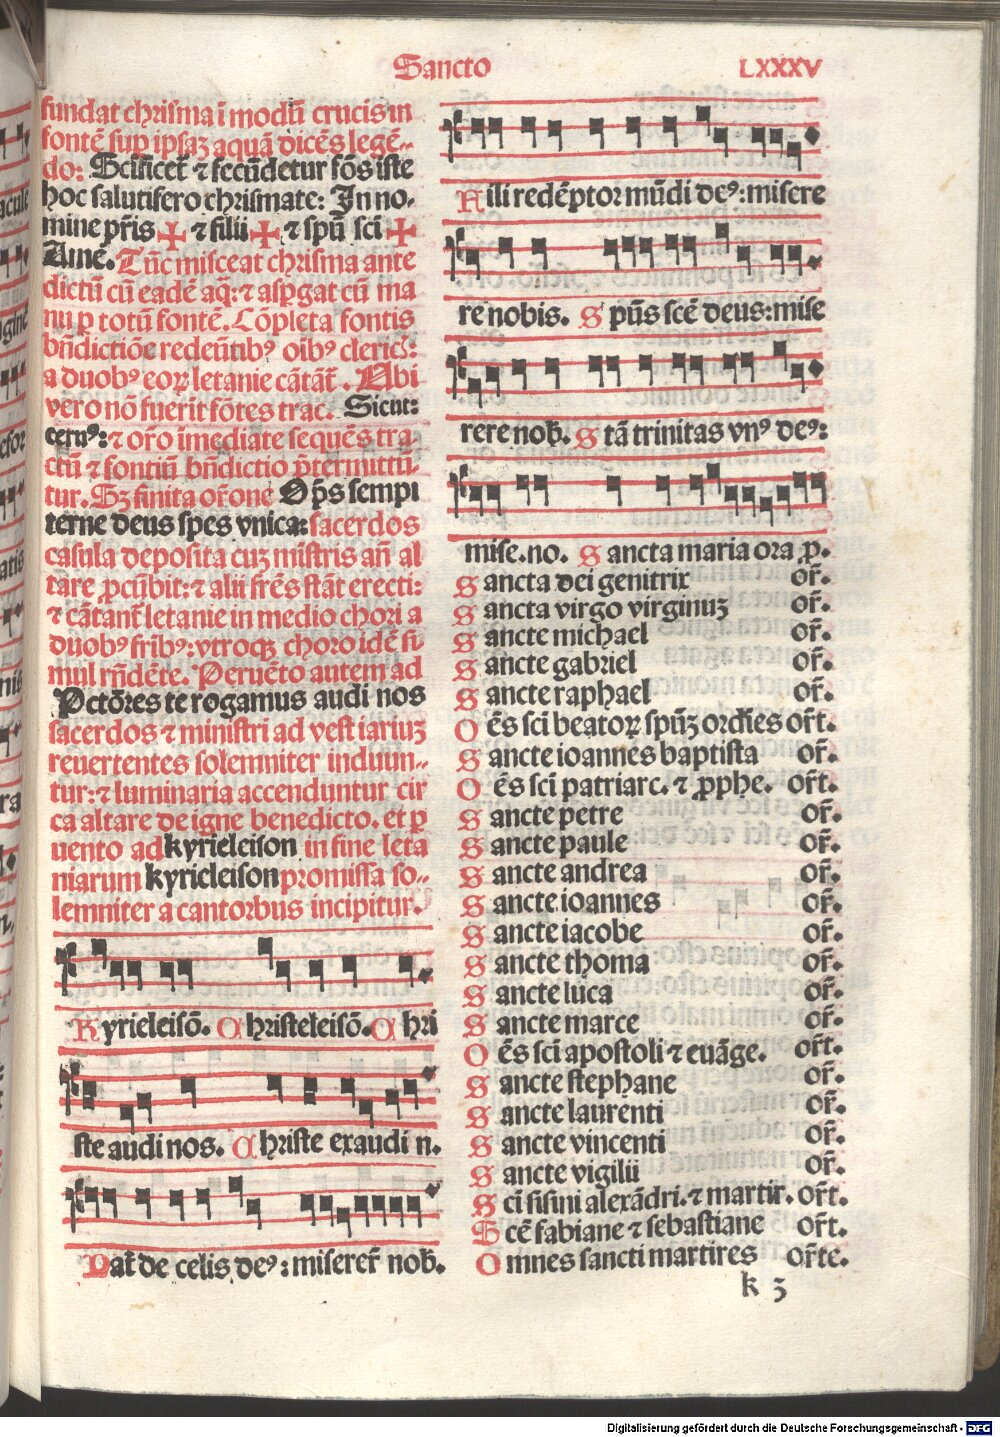 Sancto
LXXXV
fundat chrisma ī modū crucis in
fontē sup ipsaʒ aquā dicēs legē-
do: Sc̄ificet̄ ⁊ fecūdetur fōs iste
hoc salutifero chrismate: In no-
mine pr̄is ✠ ⁊ filii ✠ ⁊ spū sc̄i ✠
Amē. Tūc misceat chrisma ante
dictū cū eadē aq̄: ⁊ asꝑgat cū ma
nu ꝑ totū fontē. Cōpleta fontis
bn̄dictiōe redeūtibꝰ oībꝰ cleric̄:
a duobꝰ eoꝝ letanie cātāt̄. Ubi
vero nō fuerit fōtes trac̄. Sicut
ceruꝰ: ⁊ or̄o īmediate sequēs tra
ctū ⁊ fontiū bn̄dictio p̄termittū
tur. Sʒ finita or̄one Op̄s sempi
terne deus spes vnica: sacerdos
casula deposita cuʒ mīstris añ al
tare ꝓcūbit: ⁊ alii fr̄ēs stāt erecti:
⁊ cātant̄ letanie in medio chori a
duobꝰ fr̄ibꝰ: vtroqꝫ choro idē si
mul rn̄dēte. Peruēto autem ad
Pctōres te rogamus audi nos
sacerdos ⁊ ministri ad vestiariuʒ
reuertentes solemniter induun-
tur: ⁊ luminaria accenduntur cir
ca altare de igne benedicto. et ꝑ
uento ad kyrieleison in fine leta
niarum kyrieleison promissa so-
lemniter a cantorbus incipitur.
Kyrieleisō. Christeleisō. Chri
ste audi nos. Christe exaudi n.
Pat̄ de celis deꝰ: miserer̄ nob̄.
Fili redēptor mūdi deꝰ: misere
re nobis. Spūs scē deus: mise
rere nob̄. Sctā trinitas vnꝰ deꝰ:
mise. no. Sancta maria ora ꝓ.
Sancta dei genitrix or̄.
Sancta virgo virginuʒ or̄.
Sancte michael or̄.
Sancte gabriel or̄.
Sancte raphael or̄.
Oēs sc̄i beatoꝝ spūʒ ordīes or̄t.
Sancte ioannes baptista or̄.
Oēs sc̄i patriarc. ⁊ ꝓphe. or̄t.
Sancte petre or̄.
Sancte paule or̄.
Sancte andrea or̄.
Sancte ioannes or̄.
Sancte iacobe or̄.
Sancte thoma or̄.
Sancte luca or̄.
Sancte marce or̄.
Oēs sc̄i apostoli ⁊ euāge. or̄t.
Sancte stephane or̄.
Sancte laurenti or̄.
Sancte vincenti or̄.
Sancte vigilii or̄.
Sc̄i sisini alexādri. ⁊ martir̄. or̄t.
Scē fabiane ⁊ sebastiane or̄t.
Omnes sancti martires or̄te.
k 3
Digitalisierung gefördert durch die Deutsche Forschungsgemeinschaft - DFG